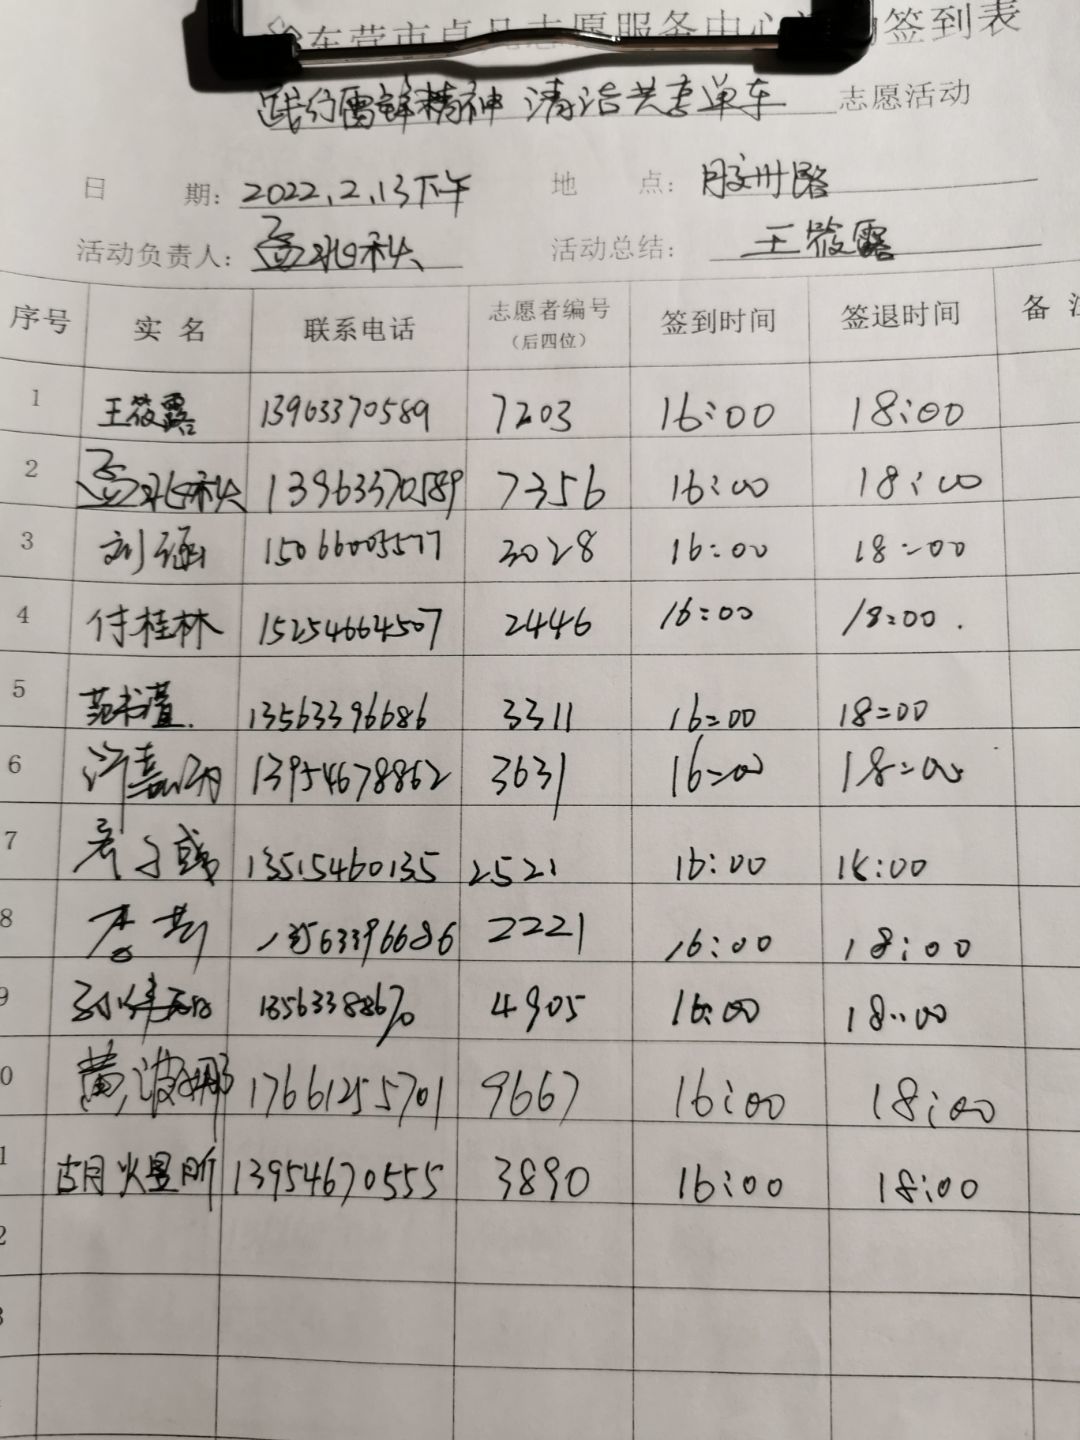 东营市 志愿服务中心 签到表
践行雷锋精神 清洁共享单车 志愿活动
日 期: 2022.2.13下午 地 点: 胶州路
活动负责人: 孟 秋 活动总结: 王筱露
序号 实 名 联系电话 志愿者编号 (后四位) 签到时间 签退时间 备 注
1 王筱露 13963370589 7203 16:00 18:00
2 孟 秋 13963370589 7356 16:00 18:00
3 刘涵 15066005577 3028 16:00 18:00
4 付桂林 15254664507 2446 16:00 18:00.
5 范书萱. 13563396686 3311 16:00 18:00
6 许嘉 13954678862 3631 16:00 18:00
7 子 13515460135 2521 16:00 18:00
8 13563396686 2221 16:00 18:00
9 孙 1356338867 4905 16:00 18:00
0 黄波娜 17661255701 9667 16:00 18:00
1 胡煜昕 13954670555 3890 16:00 18:00
2
3